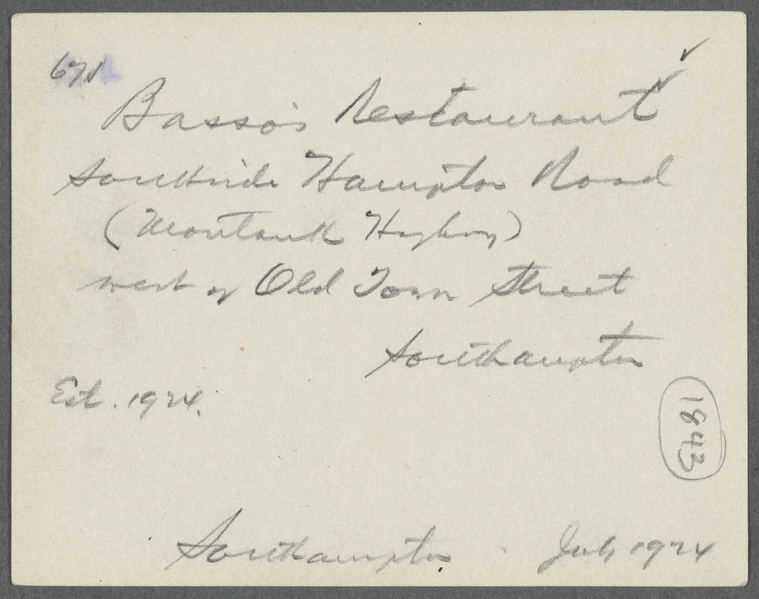 671
Basso's Restaurant
Southside Hampton Road
(Montauk Highway)
west of Old Town Street
Southampton
Est. 1924.
1843
Southampton July 1924